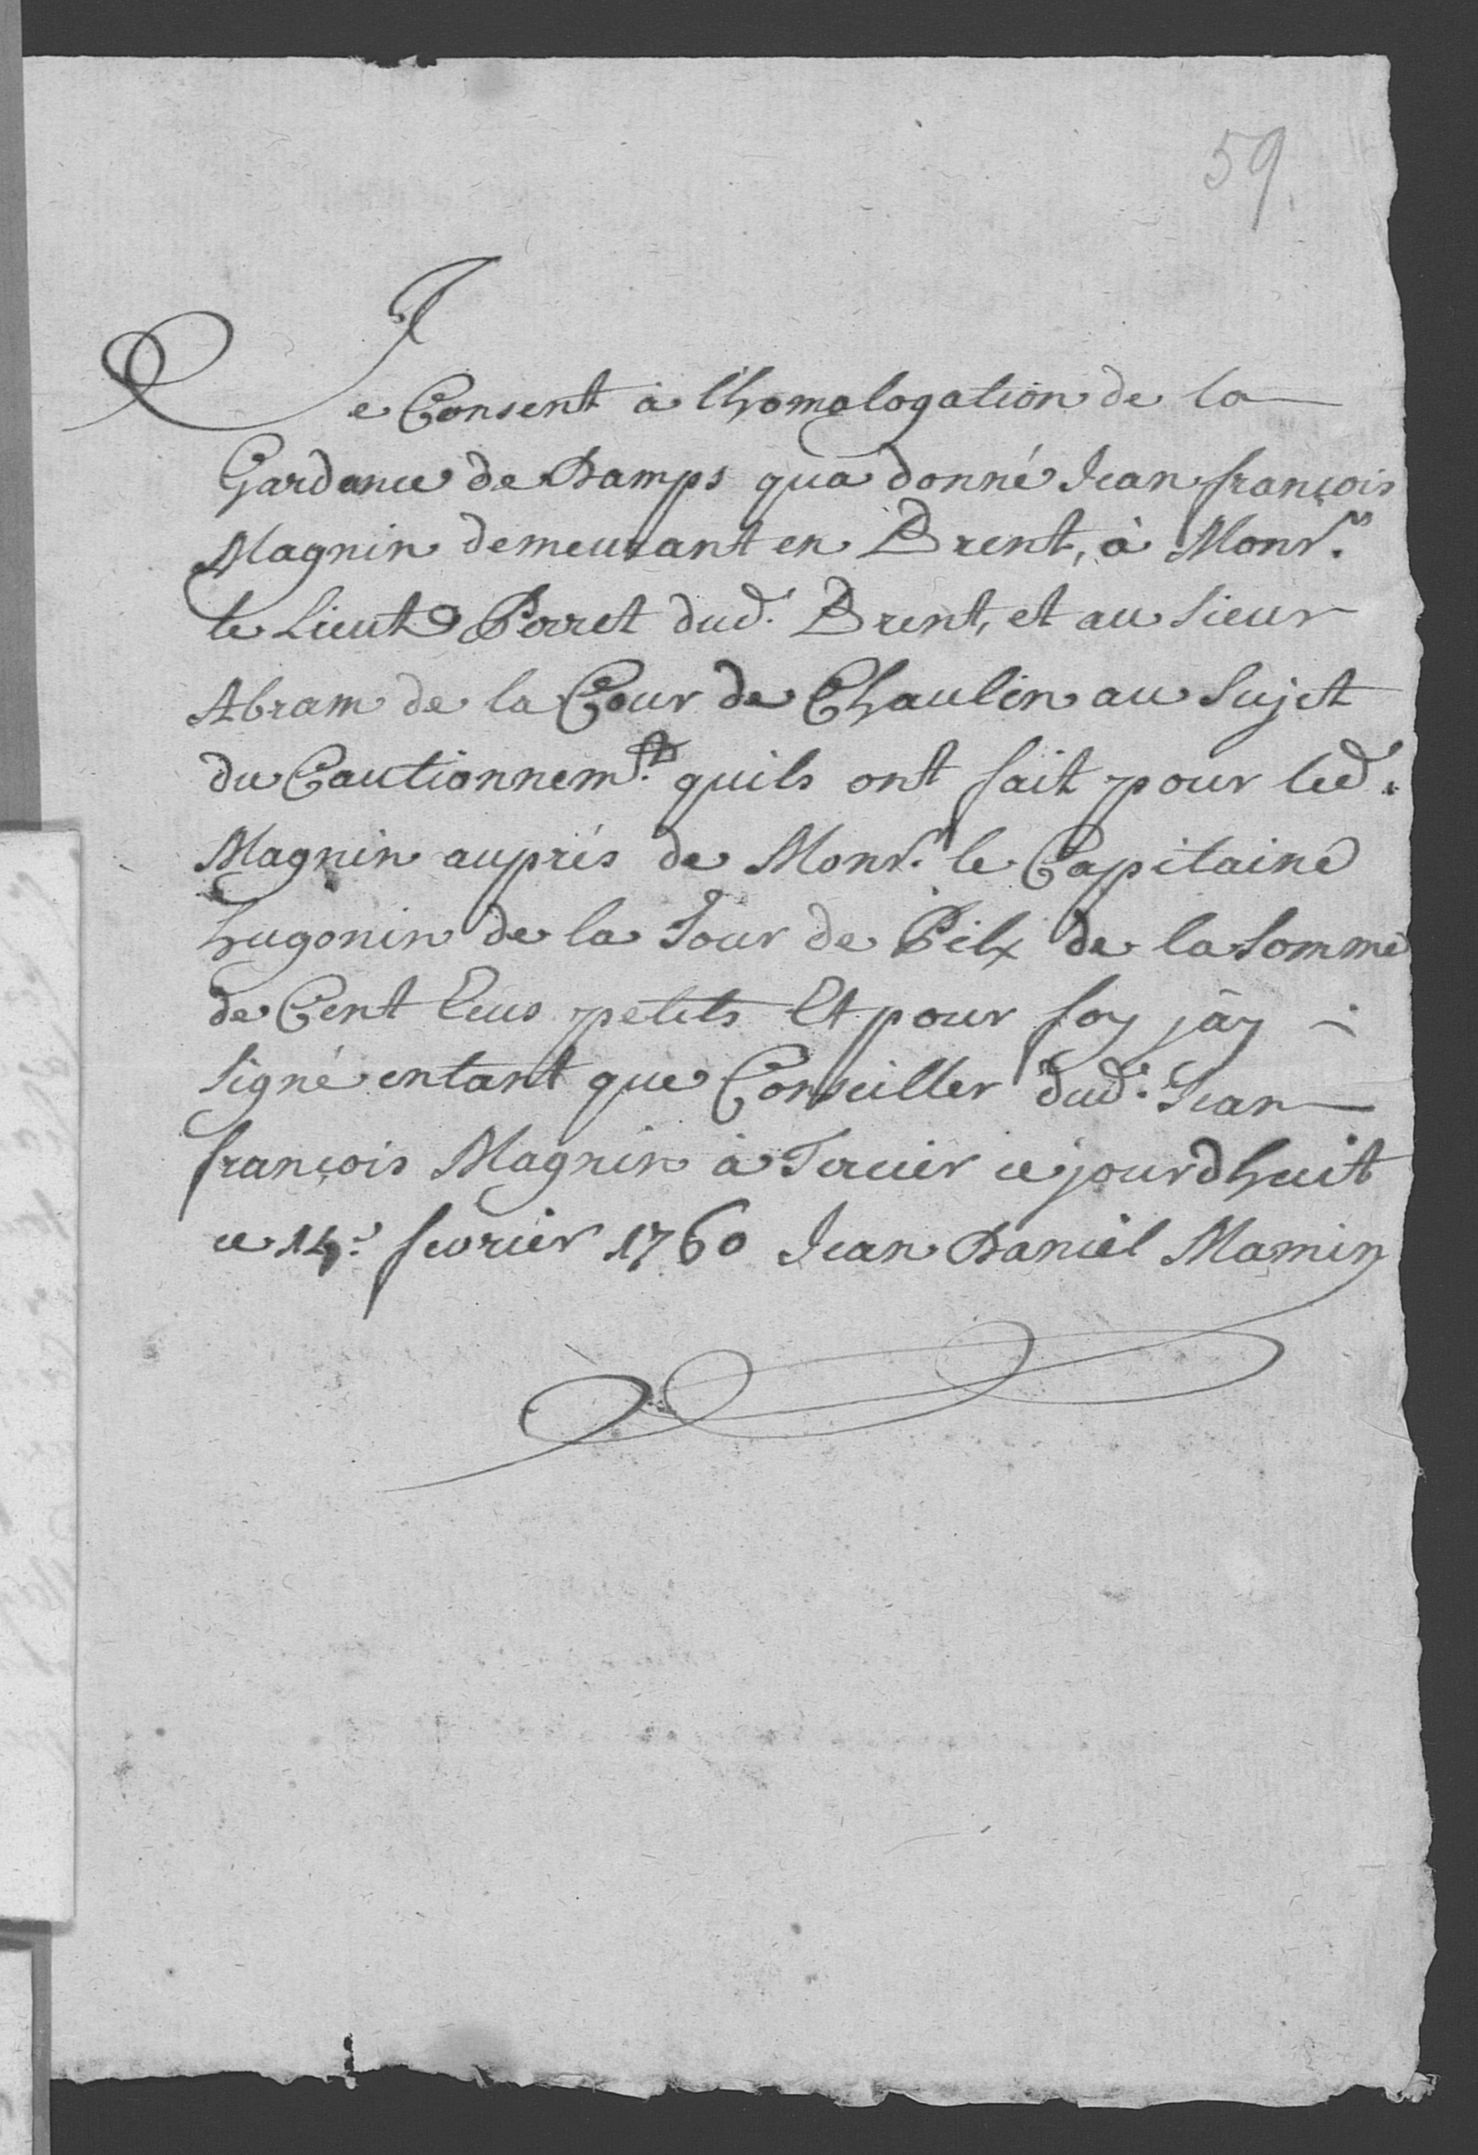 59.
Je Consent à l'homologation de la
Gardance de Damps qua donné Jean françois
Magnin demeurant en Brent, à Monsr.
le Lieut Perret dud. Brent, et au Sieur
Abram de la Cour de Chaulin au Sujet
du Cautionnemt. quils ont fait pour led.
Magnin auprés de Monsr. le Capitaine
hugonin de la Tour de Peilx de la Somme
de Cent Ecus petits Et pour foy jáy
Signé entant que Conseiller dud. Jean
françois Magnin à Tercier ce jourdhuit
ce 14e. fevrier 1760 Jean Daniel Mamin